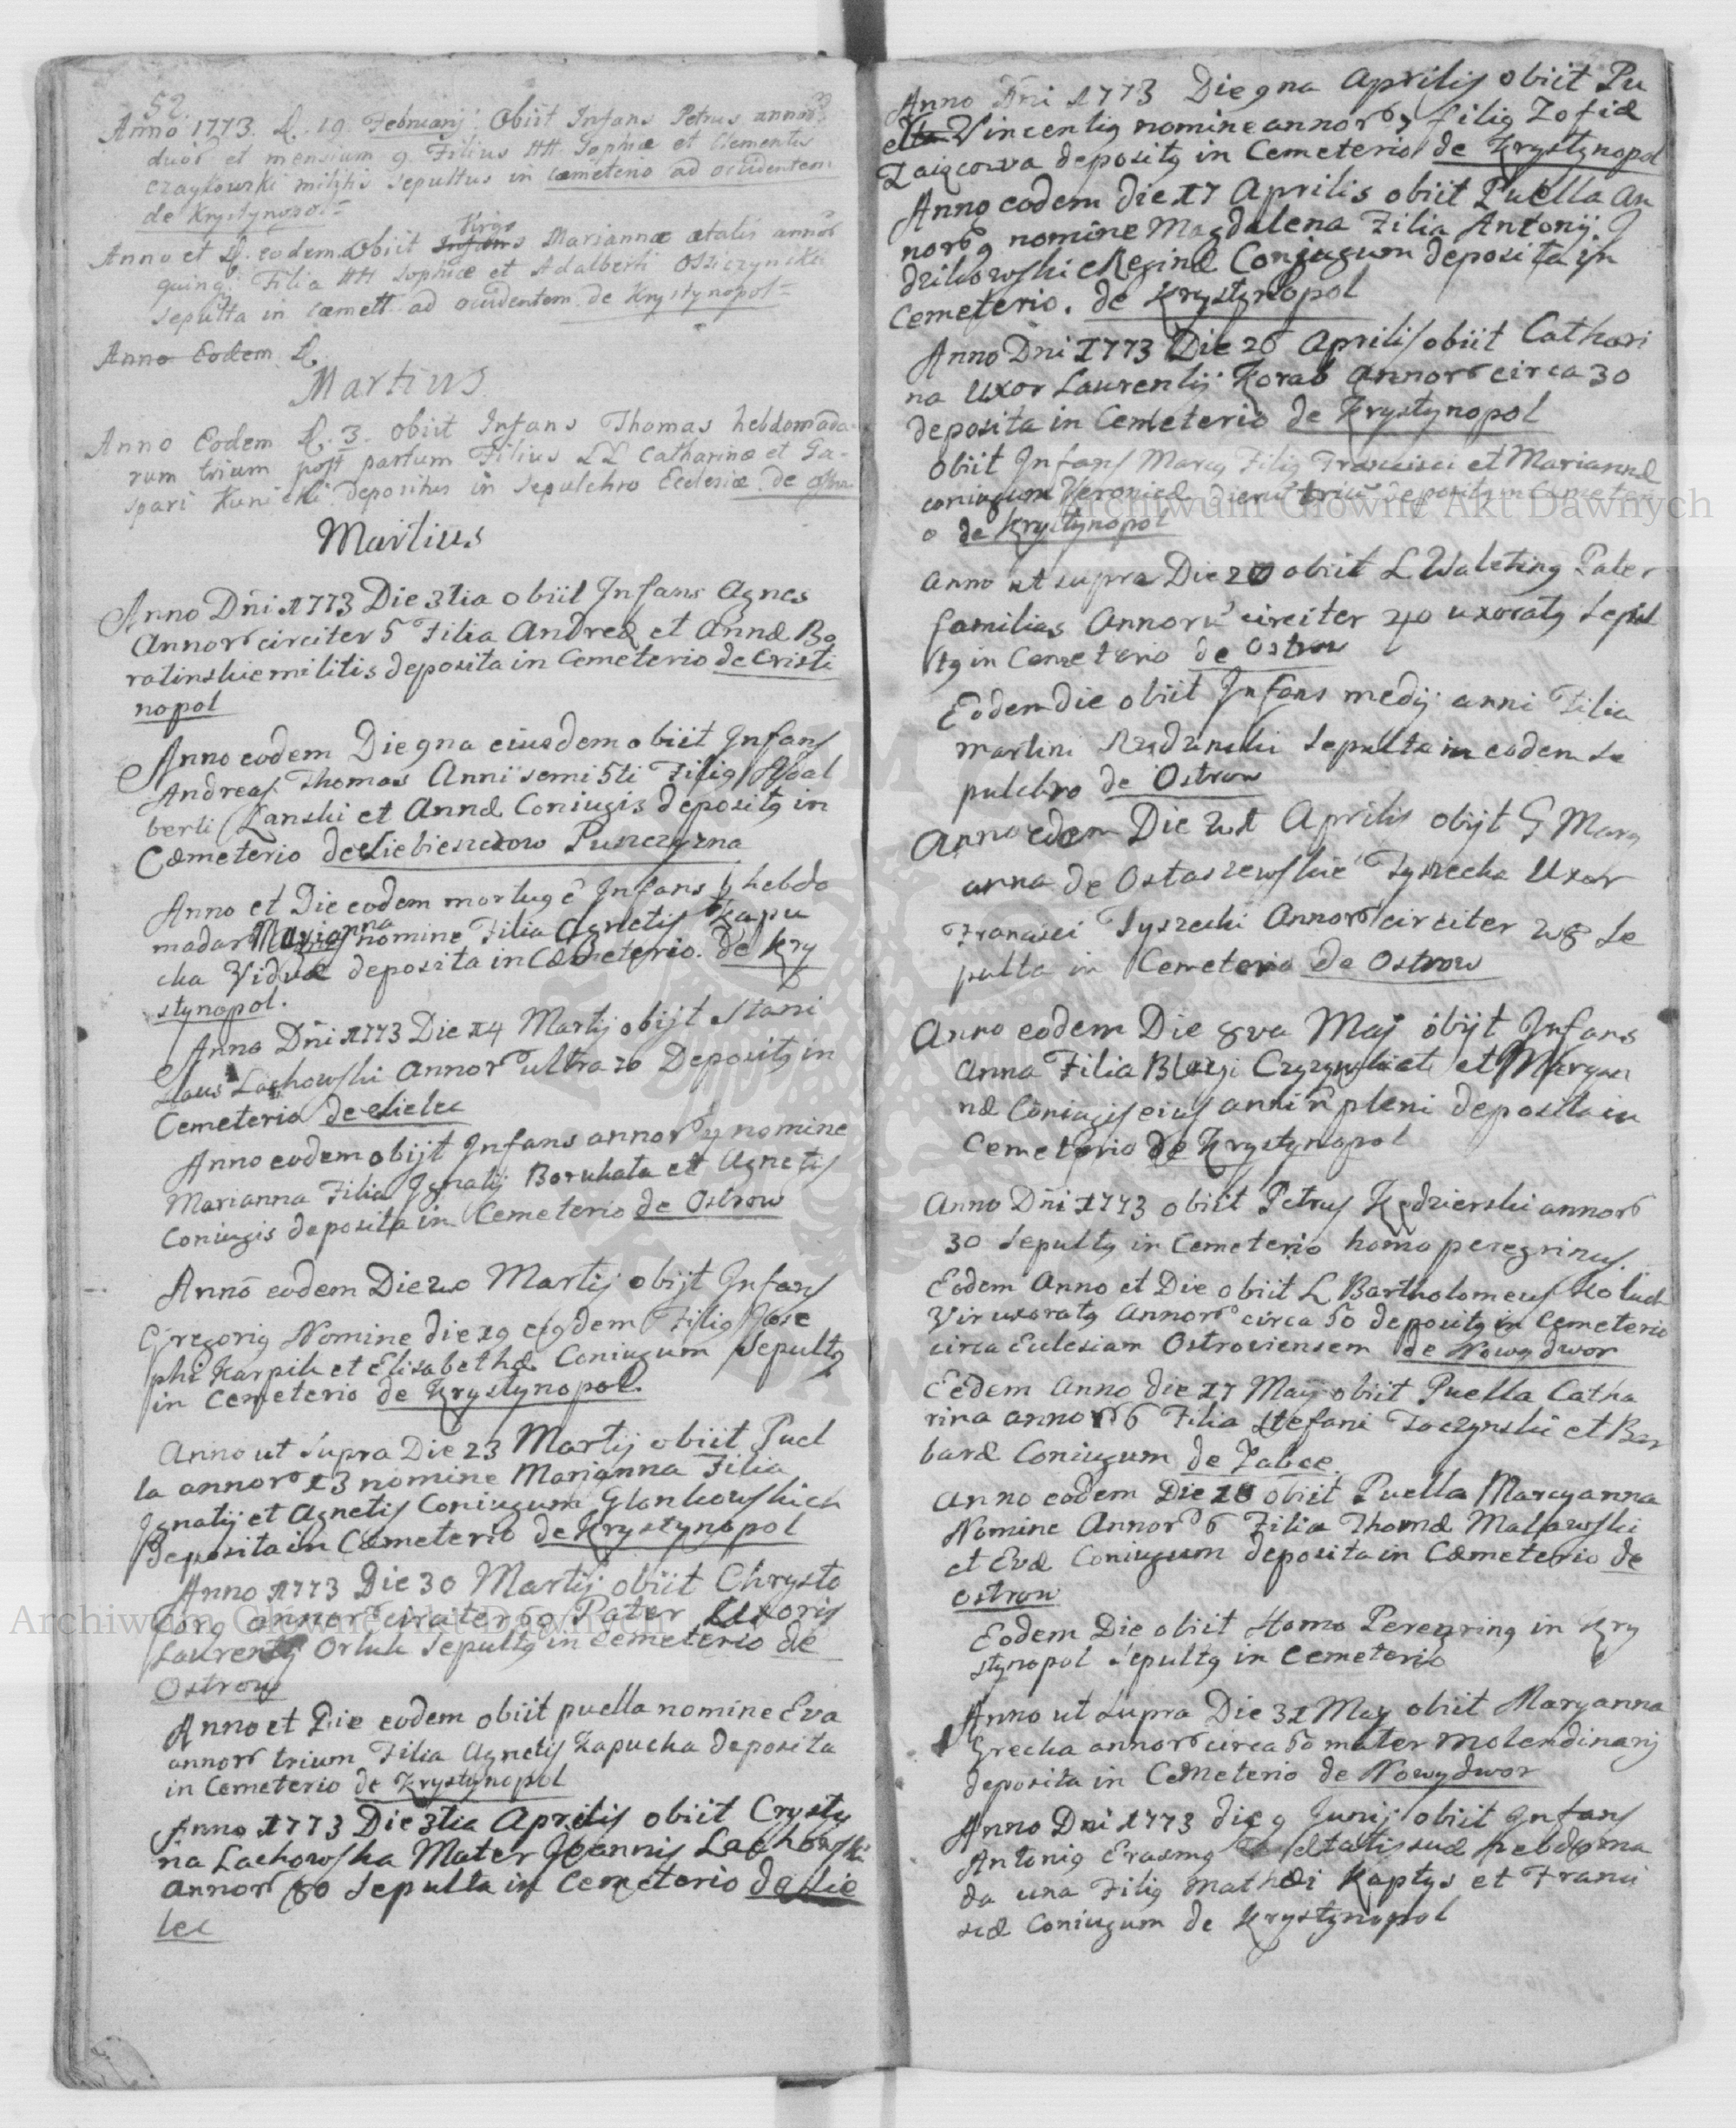 52.
Anno 1773. D. 19. Februarij. Obiit Infans Petrus annor.
duor. et mensium 9. Filius HH Sophiæ et Clementis
Czaykowski militis sepultus in cæmeterio ad occidentem
de Krystynopol
Anno et D. eodem Obiit Infans Virgo Mariannæ ætatis annor.
quinq. Filia HH Sophiæ et Adalberti
sepulta in cæmett. ad occidentem de Krystynopol
Anno Eodem D.
Martius
Anno Eodem D. 3. Obiit Infans Thomas hebdomada-
rum trium post partum Filius LL Catharinæ et Ga-
spari Kunicki depositus in Sepulchro Ecclesiæ de
Martius
Anno Dñi 1773 Die 3tia obiit Infans Agnes
Annor circiter 5 Filia Andreæ et Annæ Bo
ratinskie militis deposita in Cemeterio de Cristi
nopol
Anno eodem Die 9na eiusdem obiit Infans
Andreas Thomas Anni semi 5ti Filig Adal
berti Lanski et Annæ Coniugis deposity in
Cæmeterio de Puszczyzna
Anno et Die eodem mortug ē Infans hebdo
madar Marianna nomine Filia Agnetis Kapu
cka Viduæ deposita in Cæmeterio. de Kry
stynopol.
Anno Dñi 1773 Die 14 Martij obijt Stani
slaus Lachowski Annor ultra 20 Deposity in
Cemeterio de Sielec
Anno eodem obijt Infans annor 4 nomine
Marianna Filia Ignatij Borukata et Agnetis
Coniugis deposita in Cemeterio de Ostrow
Anno eodem Die 20 Martij obijt Infans
Gregorig Nomine die 19 eigdem Filig Jose
phi Karpik et Elisabethæ Coniugum sepulty
in Cemeterio de Krystynopol.
Anno ut supra Die 23 Martij obiit Puel
la annor 13 nomine Marianna Filia
Ignatij et Agnetis Coniugum Glonkowskich
Deposita in Cæmeterio de Krystynopol
Anno 1773 Die 30 Martij obiit Chrysto
forg annor circiter 60 Pater Uxoris
Laurentij Orluk sepulty in Cemeterio de
Ostrow
Anno et Die eodem obiit puella nomine Eva
annor trium Filia Agnetis Kapucka deposita
in Cemeterio de Krystynopol
Anno 1773 Die 3tia Aprilis obiit Crysty
na Lachowska Mater Joannis Lachowski
annor 80 sepulta in Cemeterio de Sie
lec
Anno Dñi 1773 Die 9na Aprilis obiit Pu
ella Vincentig nomine annor 7 filig Zofiæ
Zaiącowa deposity in Cemeterio de Krystynopol
Anno eodem die 17 Aprilis obiit Puella an
nor 9 nomine Magdalena Filia Antonij
dzikowski et Reginæ Coniugum deposita in
Cemeterio. de Krystynopol
Anno Dñi 1773 Die 26 Aprilis obiit Cathari
na Uxor Laurentij Korab Annor circa 30
deposita in Cemeterio de Krystynopol
Obiit Infans Marcg Filig Francisci et Mariannæ
coniugum dieru triu deposity in Cemeteri
o de Krystynopol
Anno ut supra Die 20 obiit L Walęting Pater
familias Annoru circiter 40 uxoratg Sepul
tg in Cemeterio de Ostrow
Eodem die obiit Infans medij anni Filia
Martini sepulta in eodem Se
pulchro de Ostrow
Anno eodem Die 21 Aprilis obijt G Mary
anna de Ostaszewskie Tyszecka Uxor
Francisci Tyszecki Annor circiter 28 Se
pulta in Cemeterio de Ostrow
Anno eodem Die 8va Maj obijt Infans
Anna Filia Blazji et Maryan
næ Coniugis eius anni n pleni deposita in
Cemeterio de Krystynopol
Anno Dñi 1773 obiit Petrus Kędzierski annor
30 Sepulty in Cemeterio homo peregrinus.
Eodem Anno et Die obiit L Bartholomeus
Vir uxoratg Annor circa 50 deposity in Cemeterio
circa Ecclesiam Ostroviensem de Nowydwor
Eodem Anno die 17 Maij obiit Puella Catha
rina annor 6 Filia Stefani Toczynski et Bar
baræ Coniugum de Zabce
Anno eodem Die 18 obiit Puella Maryanna
Nomine Annor 6 Filia Thomæ Malawski
et Evæ Coniugum deposita in Cæmeterio de
Ostrow
Eodem Die obiit Homo Peregring in Kry
stynopol Sepulty in Cemeterio
Anno ut supra Die 31 May obiit Maryanna
Grecka annor circa 50 mater Molendinarij
deposita in Cemeterio de Nowydwor
Anno Dni 1773 die 9 Junij obiit Infans
Antonig Erasmg ætatis suæ hebdoma
da una Filig Mathæi Kaptys et Franci
scæ Coniugum de Krystynopol
Archiwum Główne Akt Dawnych
Archiwum Główne Akt Dawnych